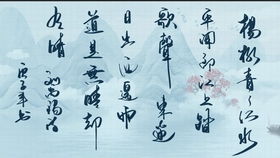 楊柳青々江水
平聞郎江上踏
歌聲東邊
日出西邊雨
道是無晴卻
有晴 劉禹錫
庚子年書